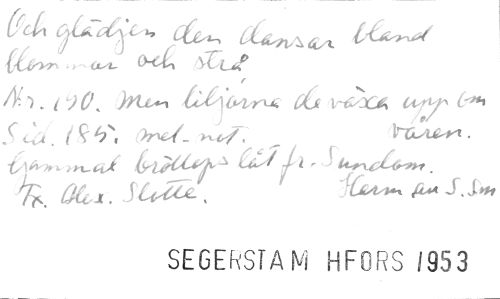 Och glädjen den dansar bland
blommor och strå,
Nr. 190. Men liljorna de växa upp om
Sid. 185. mel. not. våren.
Gammal bröllops låt fr. Sundom.
Fx. Alex. Slotte. Herman S. Sm
SEGERSTAM HFORS 1953